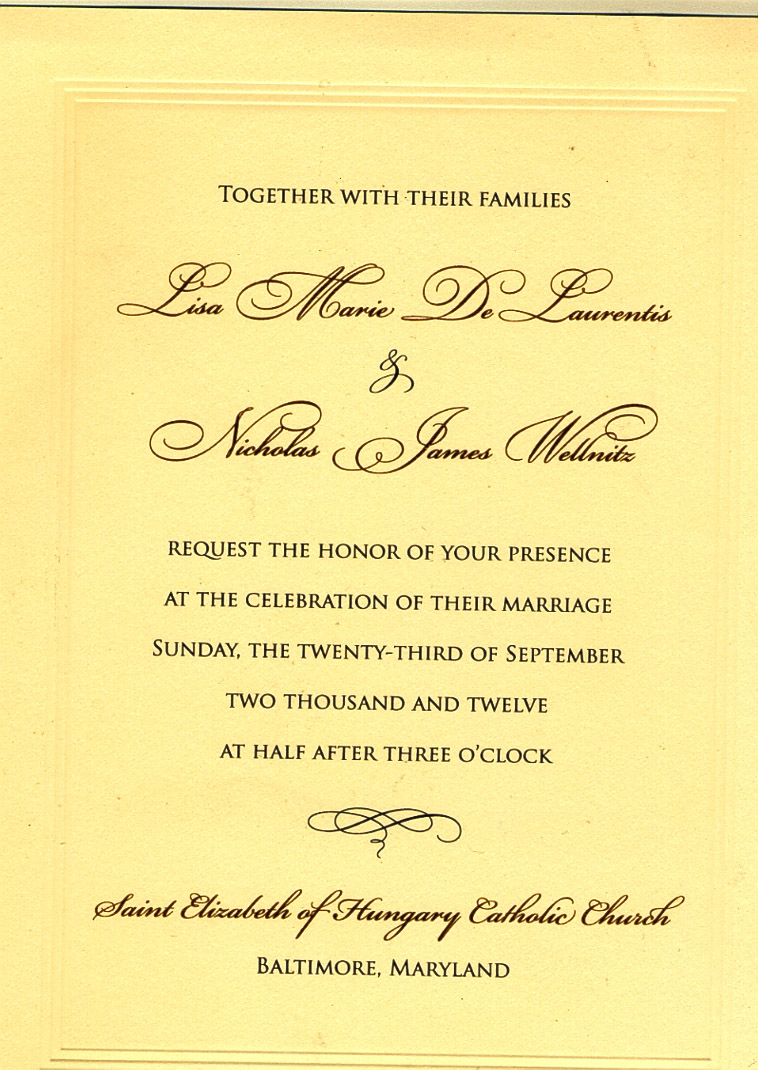 Together with their families
Lisa Marie De Laurentis
&
Nicholas James Wellnitz
request the honor of your presence
at the celebration of their marriage
Sunday, the twenty-third of September
two thousand and twelve
at half after three o'clock
Saint Elizabeth of Hungary Catholic Church
Baltimore, Maryland